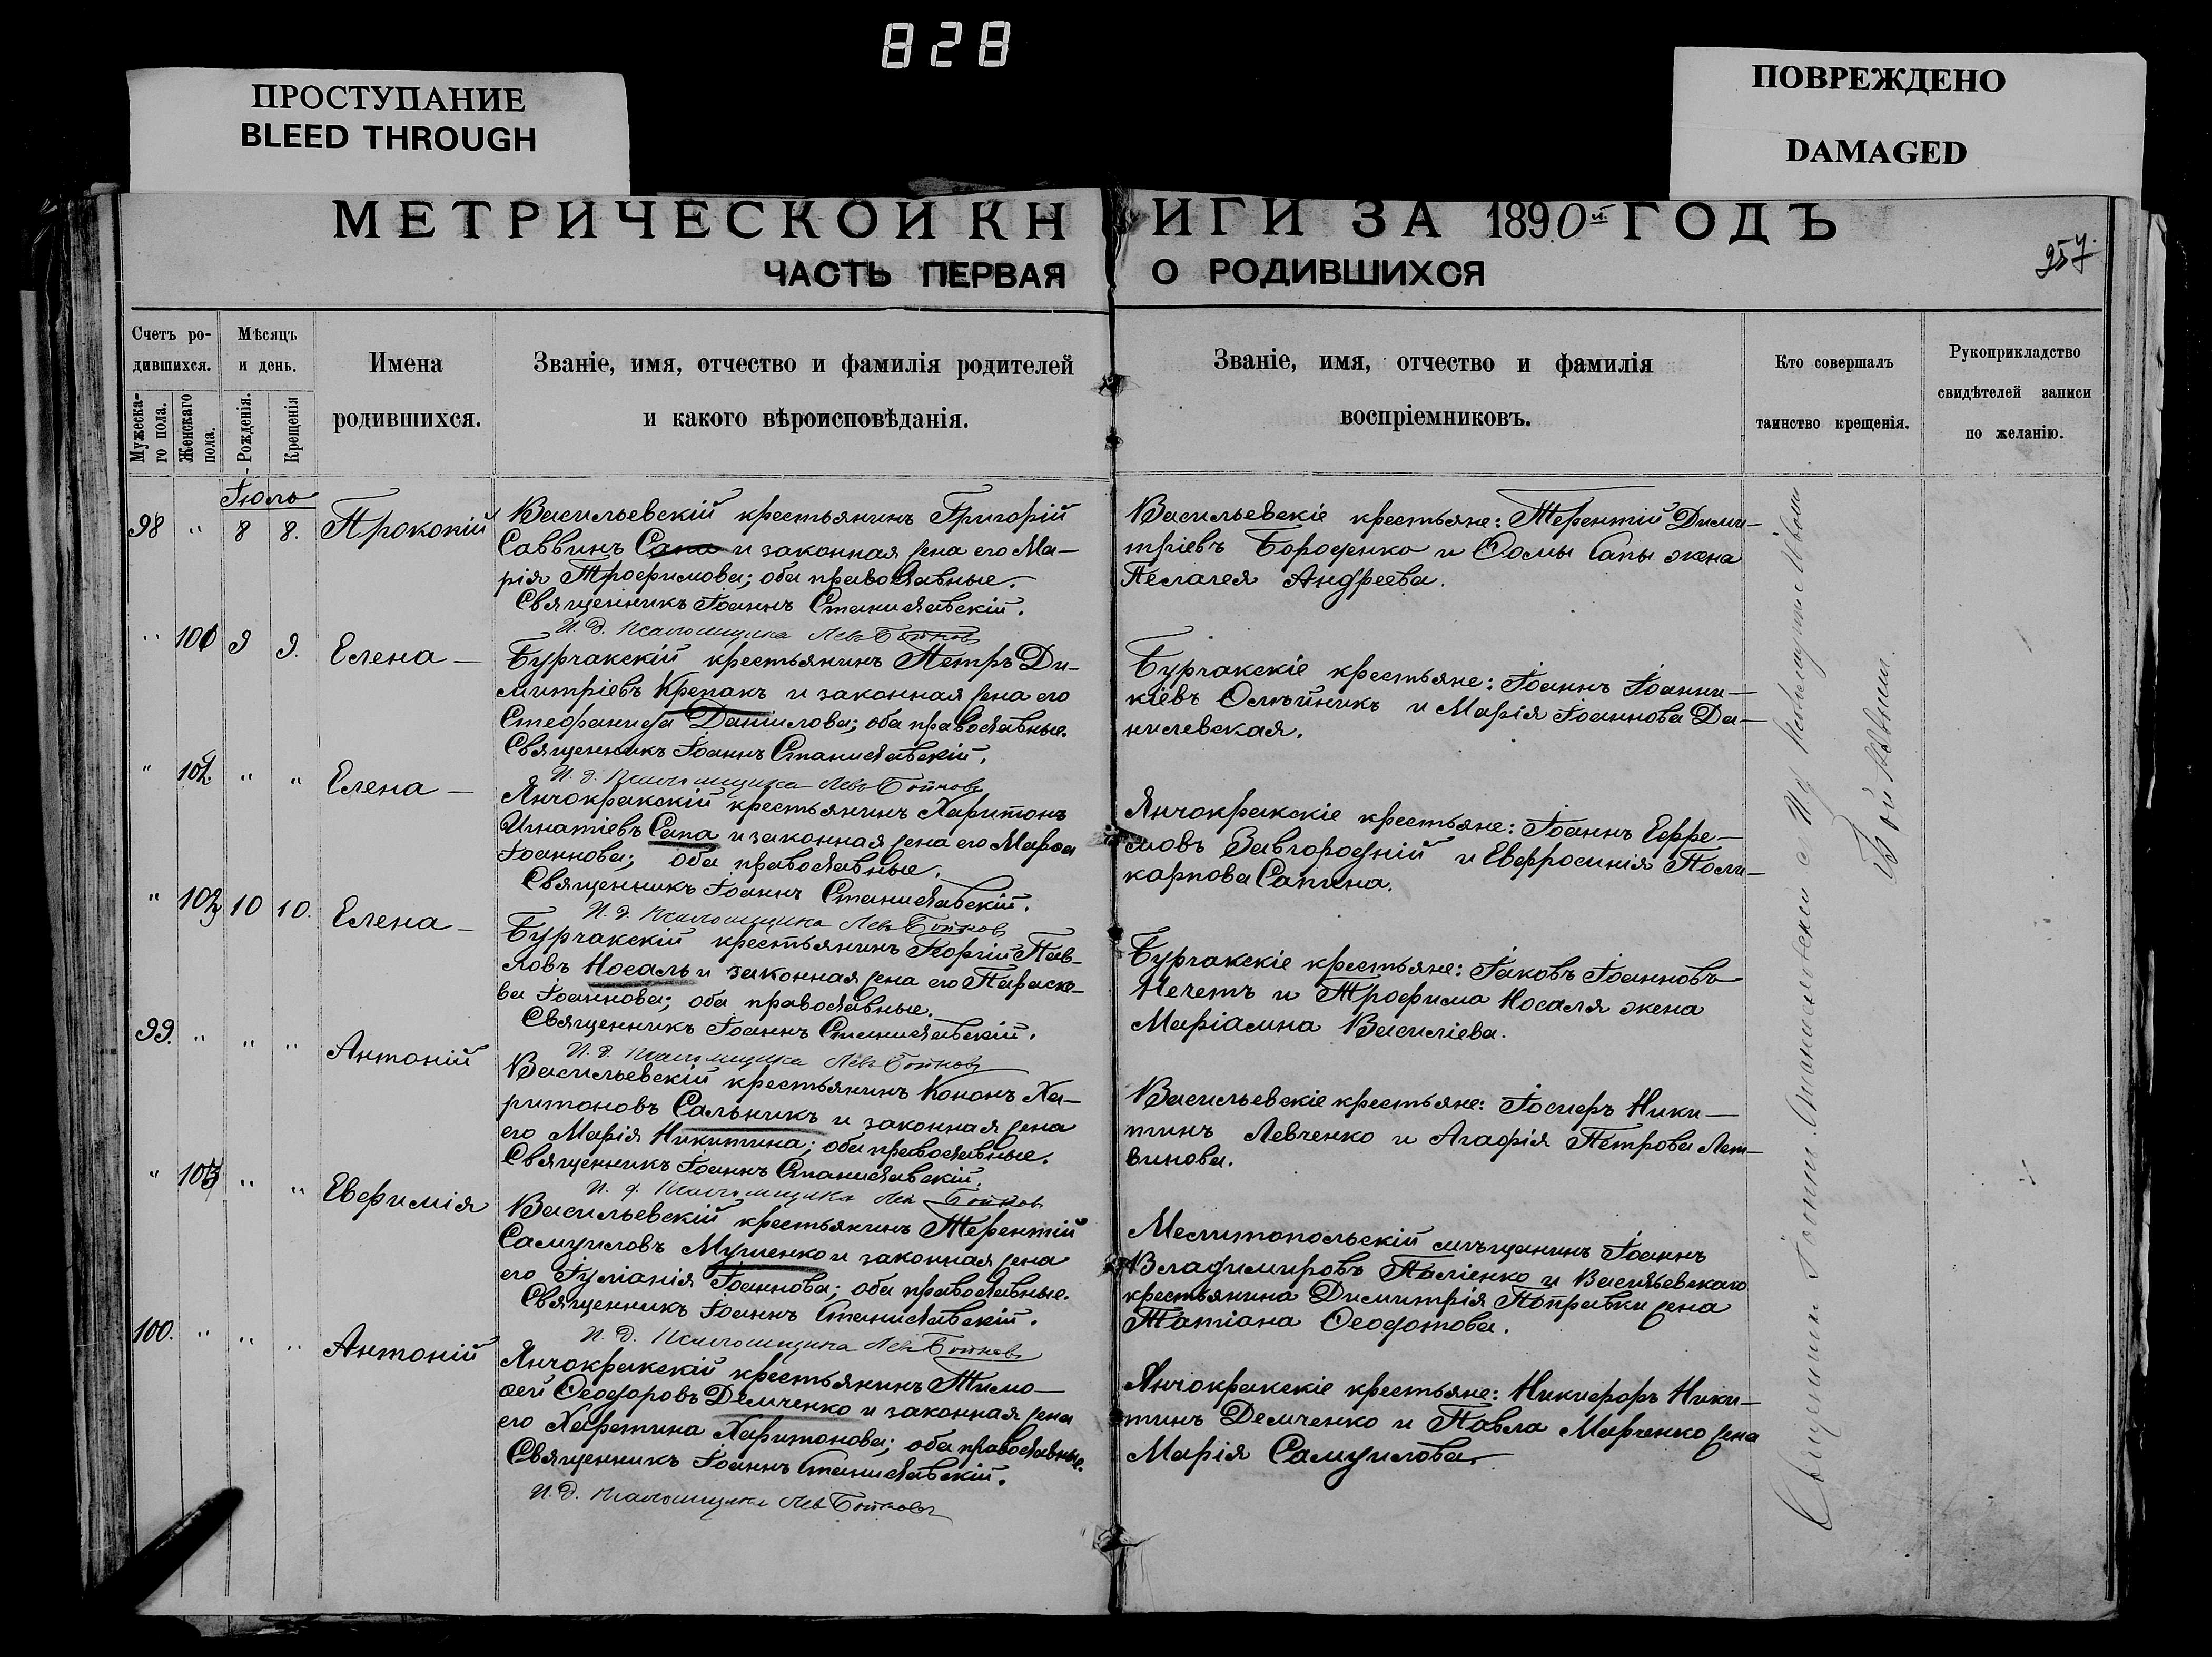 828
ПРОСТУПАНИЕ
BLEED THROUGH
ПОВРЕЖДЕНО
DAMAGED
МЕТРИЧЕСКОЙ КНИГИ ЗА 1890й ГОДЪ
257.
ЧАСТЬ ПЕРВАЯ О РОДИВШИХСЯ
Счетъ ро-
дившихся.
Мужеска-
го пола.
Женскаго
пола.
Мѣсяцъ
и день.
Рожденія.
Крещенія
Имена
родившихся.
Званіе, имя, отчество и фамилія родителей
и какого вѣроисповѣданія.
Званіе, имя, отчество и фамилія
воспріемниковъ.
Кто совершалъ
таинство крещенія.
Рукоприкладство
свидѣтелей записи
по желанію.
Іюль
98 " 8 8. Прокопій
Васильевскій крестьянинъ Григорій
Саввинъ Сапа и законная жена его Ма-
рія Трофимова; оба православные.
Священникъ Іоаннъ Станиславскій.
И. д. псаломщика Левъ Бойковъ
Васильевскіе крестьяне: Терентій Дими-
тріевъ Бороденко и Ѳомы Сапы жена
Пелагея Андреева.
" 100 9 9. Елена
Бурчакскій крестьянинъ Петръ Ди-
митріевъ Крепакъ и законная жена его
Стефанида Даніилова; оба православные.
Священникъ Іоаннъ Станиславскій.
И. д. псаломщика Левъ Бойковъ
Бурчакскіе крестьяне: Іоаннъ Іоанни-
кіевъ Олѣйникъ и Марія Іоаннова Да-
нилевская.
" 101 " " Елена
Янчокракскій крестьянинъ Харитонъ
Игнатіевъ Сапа и законная жена его Марѳа
Іоаннова; оба православные.
Священникъ Іоаннъ Станиславскій.
И. д. псаломщика Левъ Бойковъ
Янчокракскіе крестьяне: Іоаннъ Ефре-
мовъ Завгородній и Евфросинія Поли-
карпова Сапина.
" 102 10 10. Елена
Бурчакскій крестьянинъ Георгій Пав-
ловъ Носаль и законная жена его Параске-
ва Іоаннова; оба православные.
Священникъ Іоаннъ Станиславскій.
И. д. псаломщика Левъ Бойковъ
Бурчакскіе крестьяне: Іаковъ Іоанновъ
Нечетъ и Трофима Носаля жена
Маріамна Василіева.
99. " " " Антоній
Васильевскій крестьянинъ Кононъ Ха-
ритоновъ Сальникъ и законная жена
его Марія Никитина; оба православные.
Священникъ Іоаннъ Станиславскій.
И. д. псаломщика Левъ Бойковъ
Васильевскіе крестьяне: Іосифъ Ники-
тинъ Левченко и Агафія Петрова Лит-
винова.
" 103 " " Евфимія
Васильевскій крестьянинъ Терентій
Самуиловъ Мушенко и законная жена
его Іуліанія Іоаннова; оба православные.
Священникъ Іоаннъ Станиславскій.
И. д. псаломщика Левъ Бойковъ
Мелитопольскій мѣщанинъ Іоаннъ
Владимировъ Паліенко и Васильевскаго
крестьянина Димитрія Поправки жена
Татіана Ѳеодотова.
100. " " " Антоній
Янчокракскій крестьянинъ Тимо-
ѳей Ѳеодоровъ Демченко и законная жена
его Харитина Харитонова; оба православные.
Священникъ Іоаннъ Станиславскій.
И. д. псаломщика Левъ Бойковъ
Янчокракскіе крестьяне: Никифоръ Ники-
тинъ Демченко и Павла Марченко жена
Марія Самуилова.
Священникъ Іоаннъ Станиславскій с И. д. псаломщика Львомъ
Бойковымъ.